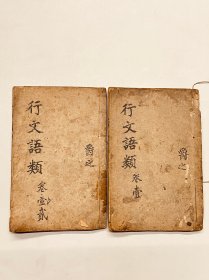 行文語類
卷壹
爵之
行文語類
卷壹貳
爵之